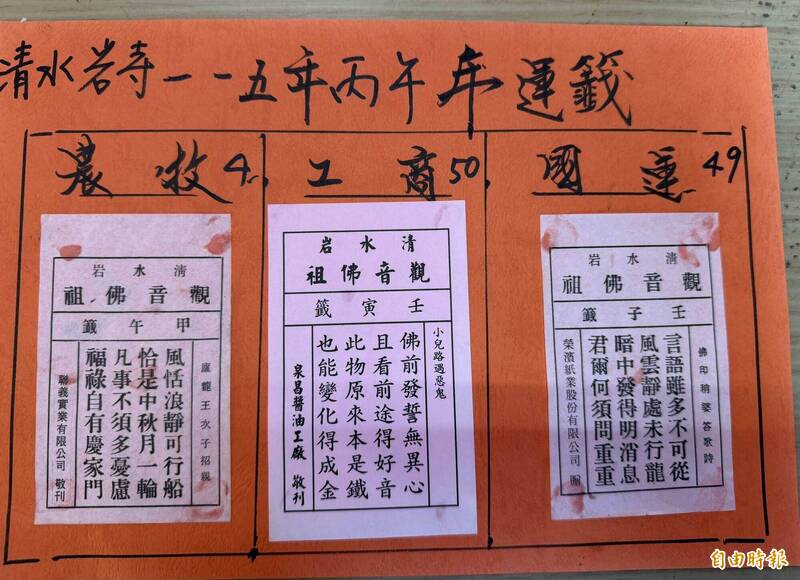 清水岩寺一一五年丙午年運籤
農牧 4.
清水岩
觀音佛祖
甲午籤
盧龍王次子招親
風恬浪靜可行船
恰是中秋月一輪
凡事不須多憂慮
福祿自有慶家門
聯義實業有限公司 敬刊
工商 50.
清水岩
觀音佛祖
壬寅籤
小兒路遇惡鬼
佛前發誓無異心
且看前途得好音
此物原來本是鐵
也能變化得成金
泉昌醬油工廠 敬刊
國運 49
清水岩
觀音佛祖
壬子籤
佛印稍婆答歌詩
言語雖多不可從
風雲靜處未行龍
暗中發得明消息
君爾何須問重重
榮濱紙業股份有限公司 贈
自由時報